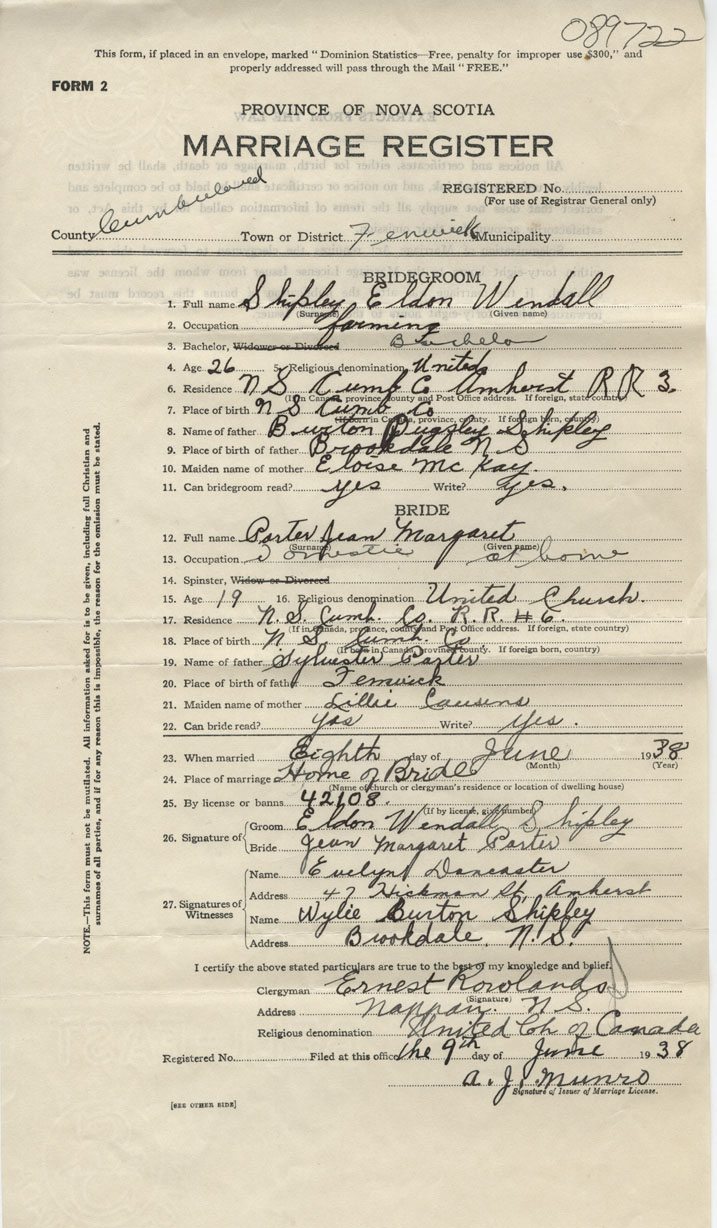 089722
This form, if placed in an envelope, marked "Dominion Statistics—Free, penalty for improper use $300," and
properly addressed will pass through the Mail "FREE."
FORM 2
PROVINCE OF NOVA SCOTIA
MARRIAGE REGISTER
REGISTERED No.
(For use of Registrar General only)
County Cumberland Town or District Fenwick Municipality
BRIDEGROOM
1. Full name Shipley Eldon Wendall
(Surname) (Given name)
2. Occupation farming
3. Bachelor, Widower or Divorced Bachelor
4. Age 26 5. Religious denomination United
6. Residence N S Cumb Co Amherst R R 3.
(If in Canada, province, county and Post Office address. If foreign, state country)
7. Place of birth N S Cumb Co
(If born in Canada, province, county. If foreign born, country)
8. Name of father Burton Pugsley Shipley
9. Place of birth of father Brookdale N S
10. Maiden name of mother Eloise McKay.
11. Can bridegroom read? yes Write? Yes.
BRIDE
12. Full name Porter Jean Margaret
(Surname) (Given name)
13. Occupation Domestic at home
14. Spinster, Widow or Divorced
15. Age 19 16. Religious denomination United Church.
17. Residence N. S. Cumb. Co. R. R. # 6.
(If in Canada, province, county and Post Office address. If foreign, state country)
18. Place of birth N S. Cumb. Co
(If born in Canada, province, county. If foreign born, country)
19. Name of father Sylvester Porter
20. Place of birth of father Fenwick
21. Maiden name of mother Lillie Cousens
22. Can bride read? Yes Write? Yes.
23. When married Eighth day of June 1938
(Month) (Year)
24. Place of marriage Home of Bride
(Name of church or clergyman's residence or location of dwelling house)
25. By license or banns 42108.
(If by license, give number)
26. Signature of Groom Eldon Wendall Shipley
Bride Jean Margaret Porter
27. Signatures of Witnesses Name Evelyn Doncaster
Address 47 Hickman St. Amherst
Name Wylie Burton Shipley
Address Brookdale, N.S.
I certify the above stated particulars are true to the best of my knowledge and belief.
Clergyman Ernest Rowlands
(Signature)
Address Nappan, N. S.
Religious denomination United Ch of Canada
Registered No. Filed at this office the 9th day of June 1938
A. J. Munro
Signature of Issuer of Marriage License.
[SEE OTHER SIDE]
NOTE.—This form must not be mutilated. All information asked for is to be given, including full Christian and
surnames of all parties, and if for any reason this is impossible, the reason for the omission must be stated.